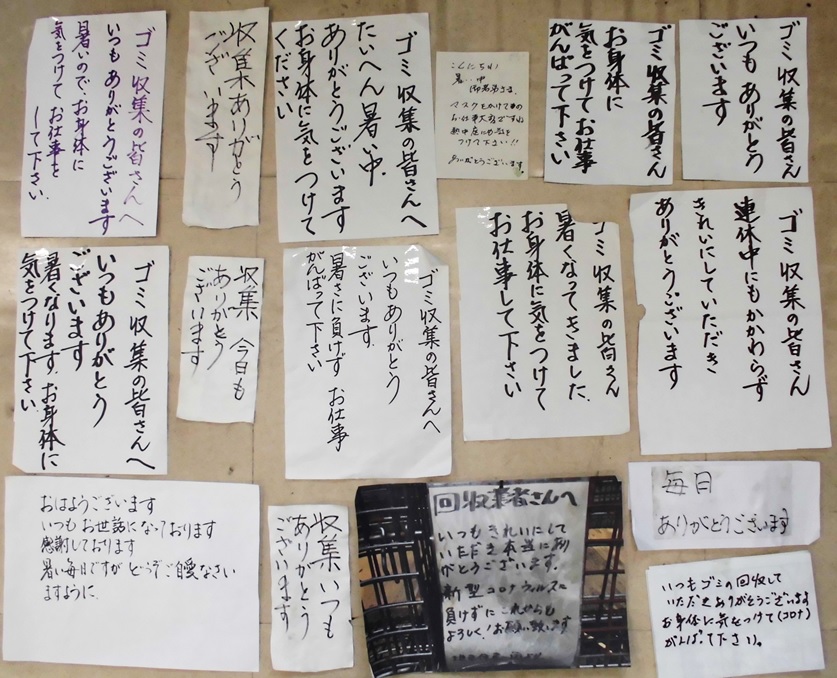 ゴミ収集の皆さんへ
いつもありがとうございます
暑いので、お身体に
気をつけてお仕事を
して下さい
収集ありがとう
ございます
ゴミ収集の皆さんへ
たいへん暑い中、
ありがとうございます
お身体に気をつけて
ください
こんにちわ
暑い中
マスクをかけて
お仕事大変ですね
熱中症に
つけて下さい!!
ありがとうございます。
ゴミ収集の皆さん
お身体に
気をつけてお仕事
がんばって下さい
ゴミ収集の皆さん
いつもありがとう
ございます
ゴミ収集の皆さんへ
いつもありがとう
ございます
暑くなります。お身体に
気をつけて下さい
収集 今日も
ありがとう
ございます
ゴミ収集の皆さんへ
いつもありがとう
ございます。
暑さに負けず お仕事
がんばって下さい
ゴミ収集の皆さん
暑くなってきました。
お身体に気をつけて
お仕事して下さい
ゴミ収集の皆さん
連休中にもかかわらず
きれいにしていただき
ありがとうございます
おはようございます
いつもお世話になっております
感謝しております
暑い毎日ですが どうぞご自愛なさい
ますように.
収集 いつも
ありがとう
ございます
回収業者さんへ
いつもきれいにして
いただき本当にあり
がとうございます。
新型コロナウィルスに
負けずにこれからも
よろしくお願い致します
毎日
ありがとうございます
いつもゴミの回収して
いただきありがとうございます
お身体に気をつけて(コロナ)
がんばって下さい。